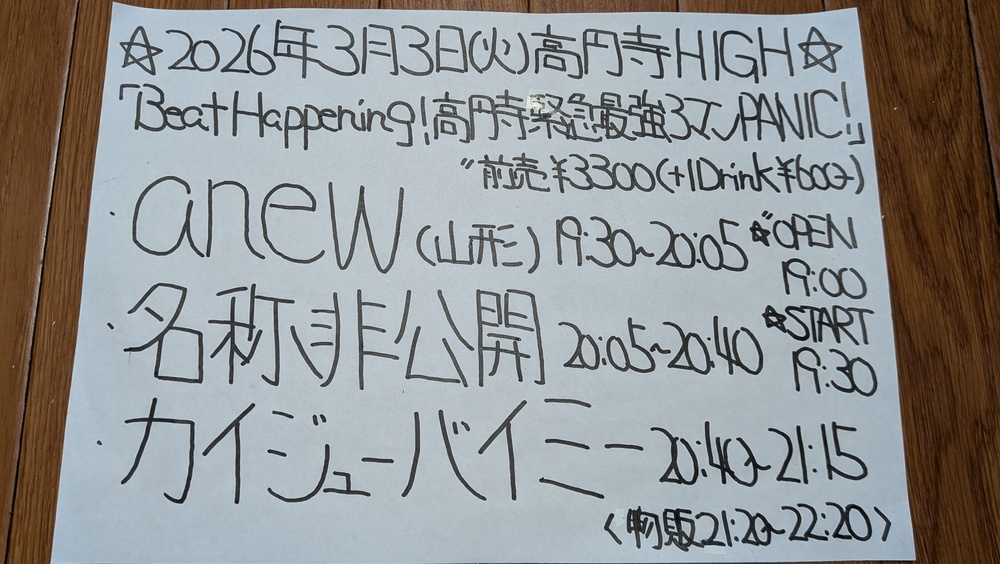 ☆2026年3月3日(火)高円寺HIGH☆
「Beat Happening!高円寺緊急最強3マンPANIC!」
"前売¥3300(+1Drink¥600-)
・anew(山形) 19:30~20:05
☆"OPEN
19:00
・名称非公開 20:05~20:40
☆START
19:30
・カイジューバイミー 20:40~21:15
<物販21:20~22:20>